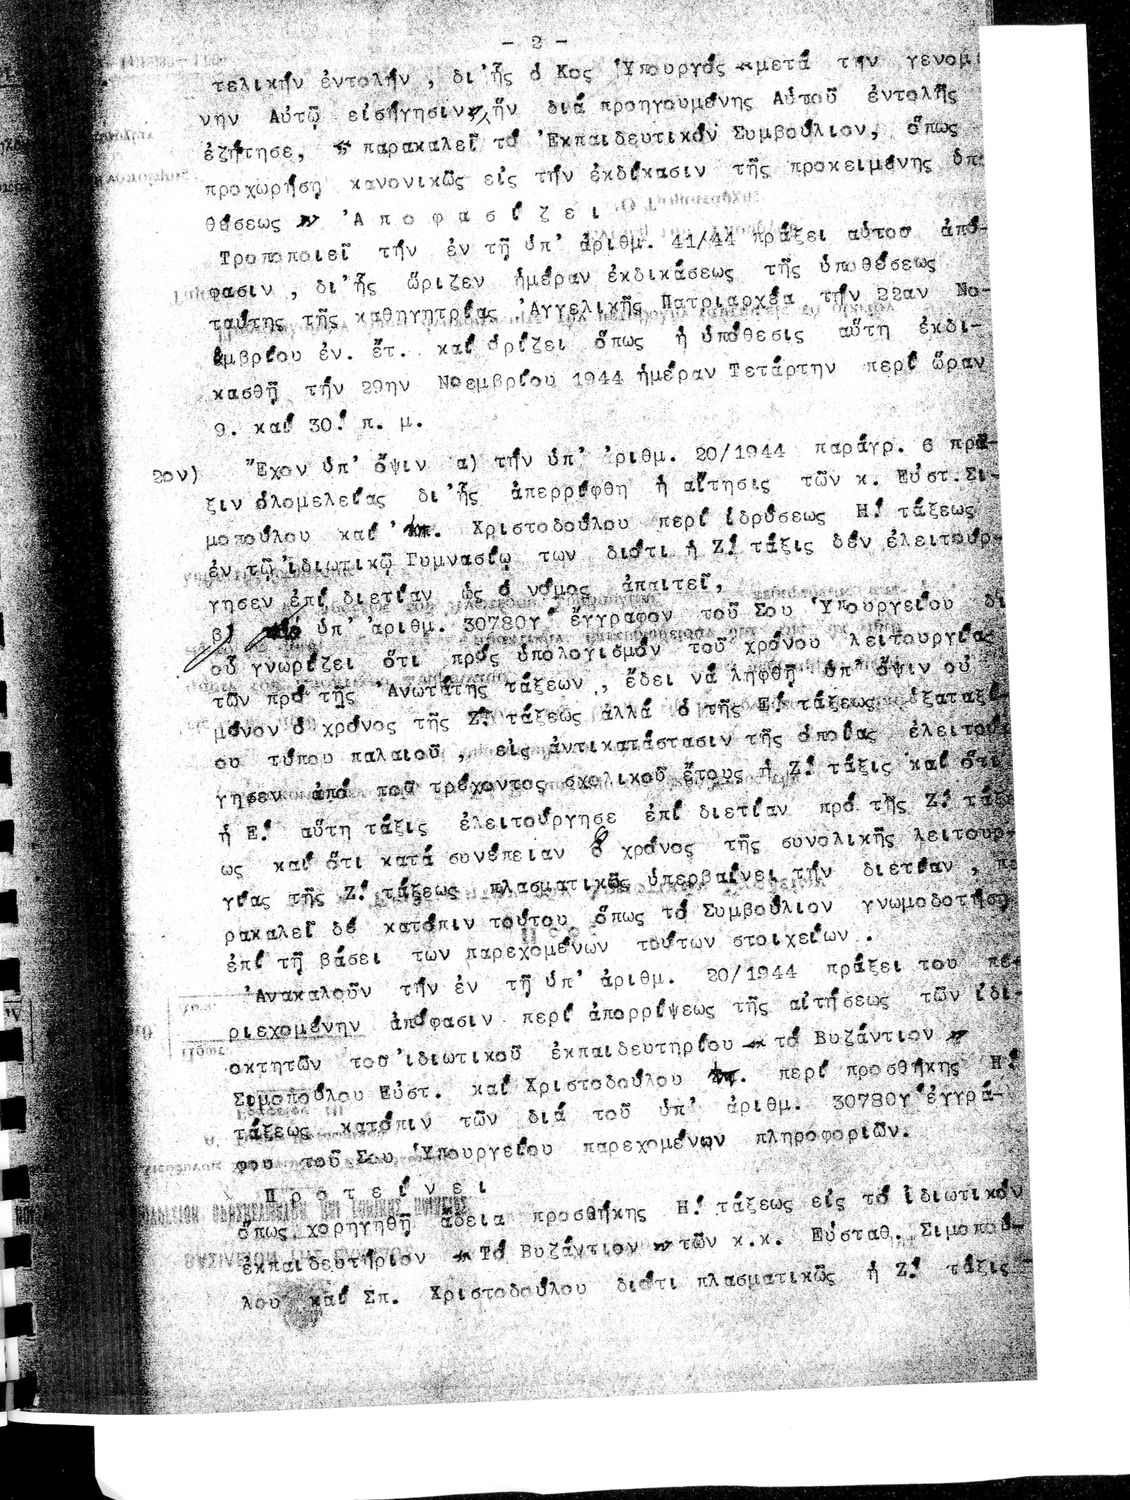 - 2 -
τελικήν ἐντολήν , δι'ἧς ὁ Κος Ὑπουργός «μετά τήν γενομέ
νην Αὐτῷ εἰσήγησιν», ἥν διά προηγουμένης Αὐτοῦ ἐντολῆς
ἐζήτησε, « παρακαλεῖ τό Ἐκπαιδευτικόν Συμβούλιον, ὅπως
προχωρήσῃ κανονικῶς εἰς τήν ἐκδίκασιν τῆς προκειμένης ὑπο
θέσεως » Ἀ π ο φ α σ ί ζ ε ι
Τροποποιεῖ τήν ἐν τῇ ὑπ' ἀριθμ. 41/44 πράξει αὐτοῦ ἀπό-
φασιν , δι'ἧς ὥριζεν ἡμέραν ἐκδικάσεως τῆς ὑποθέσεως
ταύτης τῆς καθηγητρίας Ἀγγελικῆς Πατριαρχέα τήν 22αν Νο-
εμβρίου ἐν. ἔτ. καί ὁρίζει ὅπως ἡ ὑπόθεσις αὕτη ἐκδι-
κασθῇ τήν 29ην Νοεμβρίου 1944 ἡμέραν Τετάρτην περί ὥραν
9. καί 30! π. μ.
2ον) Ἔχον ὑπ' ὄψιν α) τήν ὑπ' ἀριθμ. 20/1944 παράγρ. 6 πρᾶ-
ξιν ὁλομελείας δι'ἧς ἀπερρίφθη ἡ αἴτησις τῶν κ. Εὐστ.Σι-
μοπούλου καί Σπ. Χριστοδούλου περί ἱδρύσεως Η! τάξεως
ἐν τῷ ἰδιωτικῷ Γυμνασίῳ των διότι ἡ Ζ! τάξις δέν ἐλειτούρ-
γησεν ἐπί διετίαν ὡς ὁ νόμος ἀπαιτεῖ,
β) τό ὑπ' ἀριθμ. 30780γ' ἔγγραφον τοῦ Σου Ὑπουργείου δι
οὗ γνωρίζει ὅτι πρός ὑπολογισμόν τοῦ χρόνου λειτουργίας
τῶν πρό τῆς Ἀνωτάτης τάξεων , ἔδει νά ληφθῇ ὑπ' ὄψιν οὐ
μόνον ὁ χρόνος τῆς Ζ! τάξεως ἀλλά ὁ τῆς Ε! τάξεως ἑξαταξί-
ου τύπου παλαιοῦ , εἰς ἀντικατάστασιν τῆς ὁποίας ἐλειτούρ
γησεν ἀπό τοῦ τρέχοντος σχολικοῦ ἔτους ἡ Ζ! τάξις καί ὅτι
ἡ Ε! αὕτη τάξις ἐλειτούργησε ἐπί διετίαν πρό τῆς Ζ! τάξε
ως καί ὅτι κατά συνέπειαν ὁ χρόνος τῆς συνολικῆς λειτουρ-
γίας τῆς Ζ! τάξεως πλασματικῶς ὑπερβαίνει τήν διετίαν , πα
ρακαλεῖ δέ κατόπιν τούτου ὅπως τό Συμβούλιον γνωμοδοτήσῃ
ἐπί τῇ βάσει των παρεχομένων τούτων στοιχείων .
Ἀνακαλοῦν τήν ἐν τῇ ὑπ' ἀριθμ. 20/1944 πράξει του πε-
ριεχομένην ἀπόφασιν περί ἀπορρίψεως τῆς αἰτήσεως τῶν ἰδι-
οκτητῶν τοῦ ἰδιωτικοῦ ἐκπαιδευτηρίου «τό Βυζάντιον »
Σιμοπούλου Εὐστ. καί Χριστοδούλου Σπ. περί προσθήκης Η!
τάξεως κατόπιν τῶν διά τοῦ ὑπ' ἀριθμ. 30780γ'ἐγγρά-
φου τοῦ Σου Ὑπουργείου παρεχομένων πληροφοριῶν.
Π ρ ο τ ε ί ν ε ι
ὅπως χορηγηθῇ ἄδεια προσθήκης Η! τάξεως εἰς τό ἰδιωτικόν
ἐκπαιδευτήριον « Τό Βυζάντιον » τῶν κ.κ. Εὐσταθ. Σιμοπού-
λου καί Σπ. Χριστοδούλου διότι πλασματικῶς ἡ Ζ! τάξις